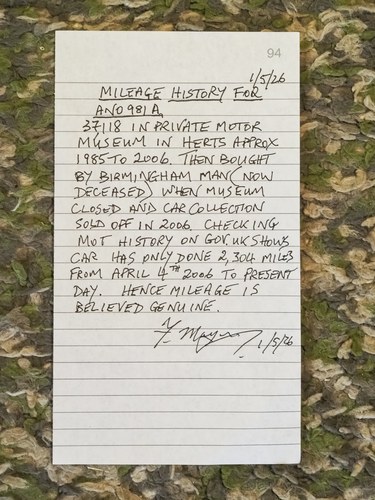 94
1/5/26
MILEAGE HISTORY FOR
ANO 981A
37118 IN PRIVATE MOTOR
MUSEUM IN HERTS APPROX
1985 TO 2006. THEN BOUGHT
BY BIRMINGHAM MAN (NOW
DECEASED) WHEN MUSEUM
CLOSED AND CAR COLLECTION
SOLD OFF IN 2006. CHECKING
MOT HISTORY ON GOV UK SHOWS
CAR HAS ONLY DONE 2,304 MILES
FROM APRIL 4TH 2006 TO PRESENT
DAY. HENCE MILEAGE IS
BELIEVED GENUINE.
1/5/26